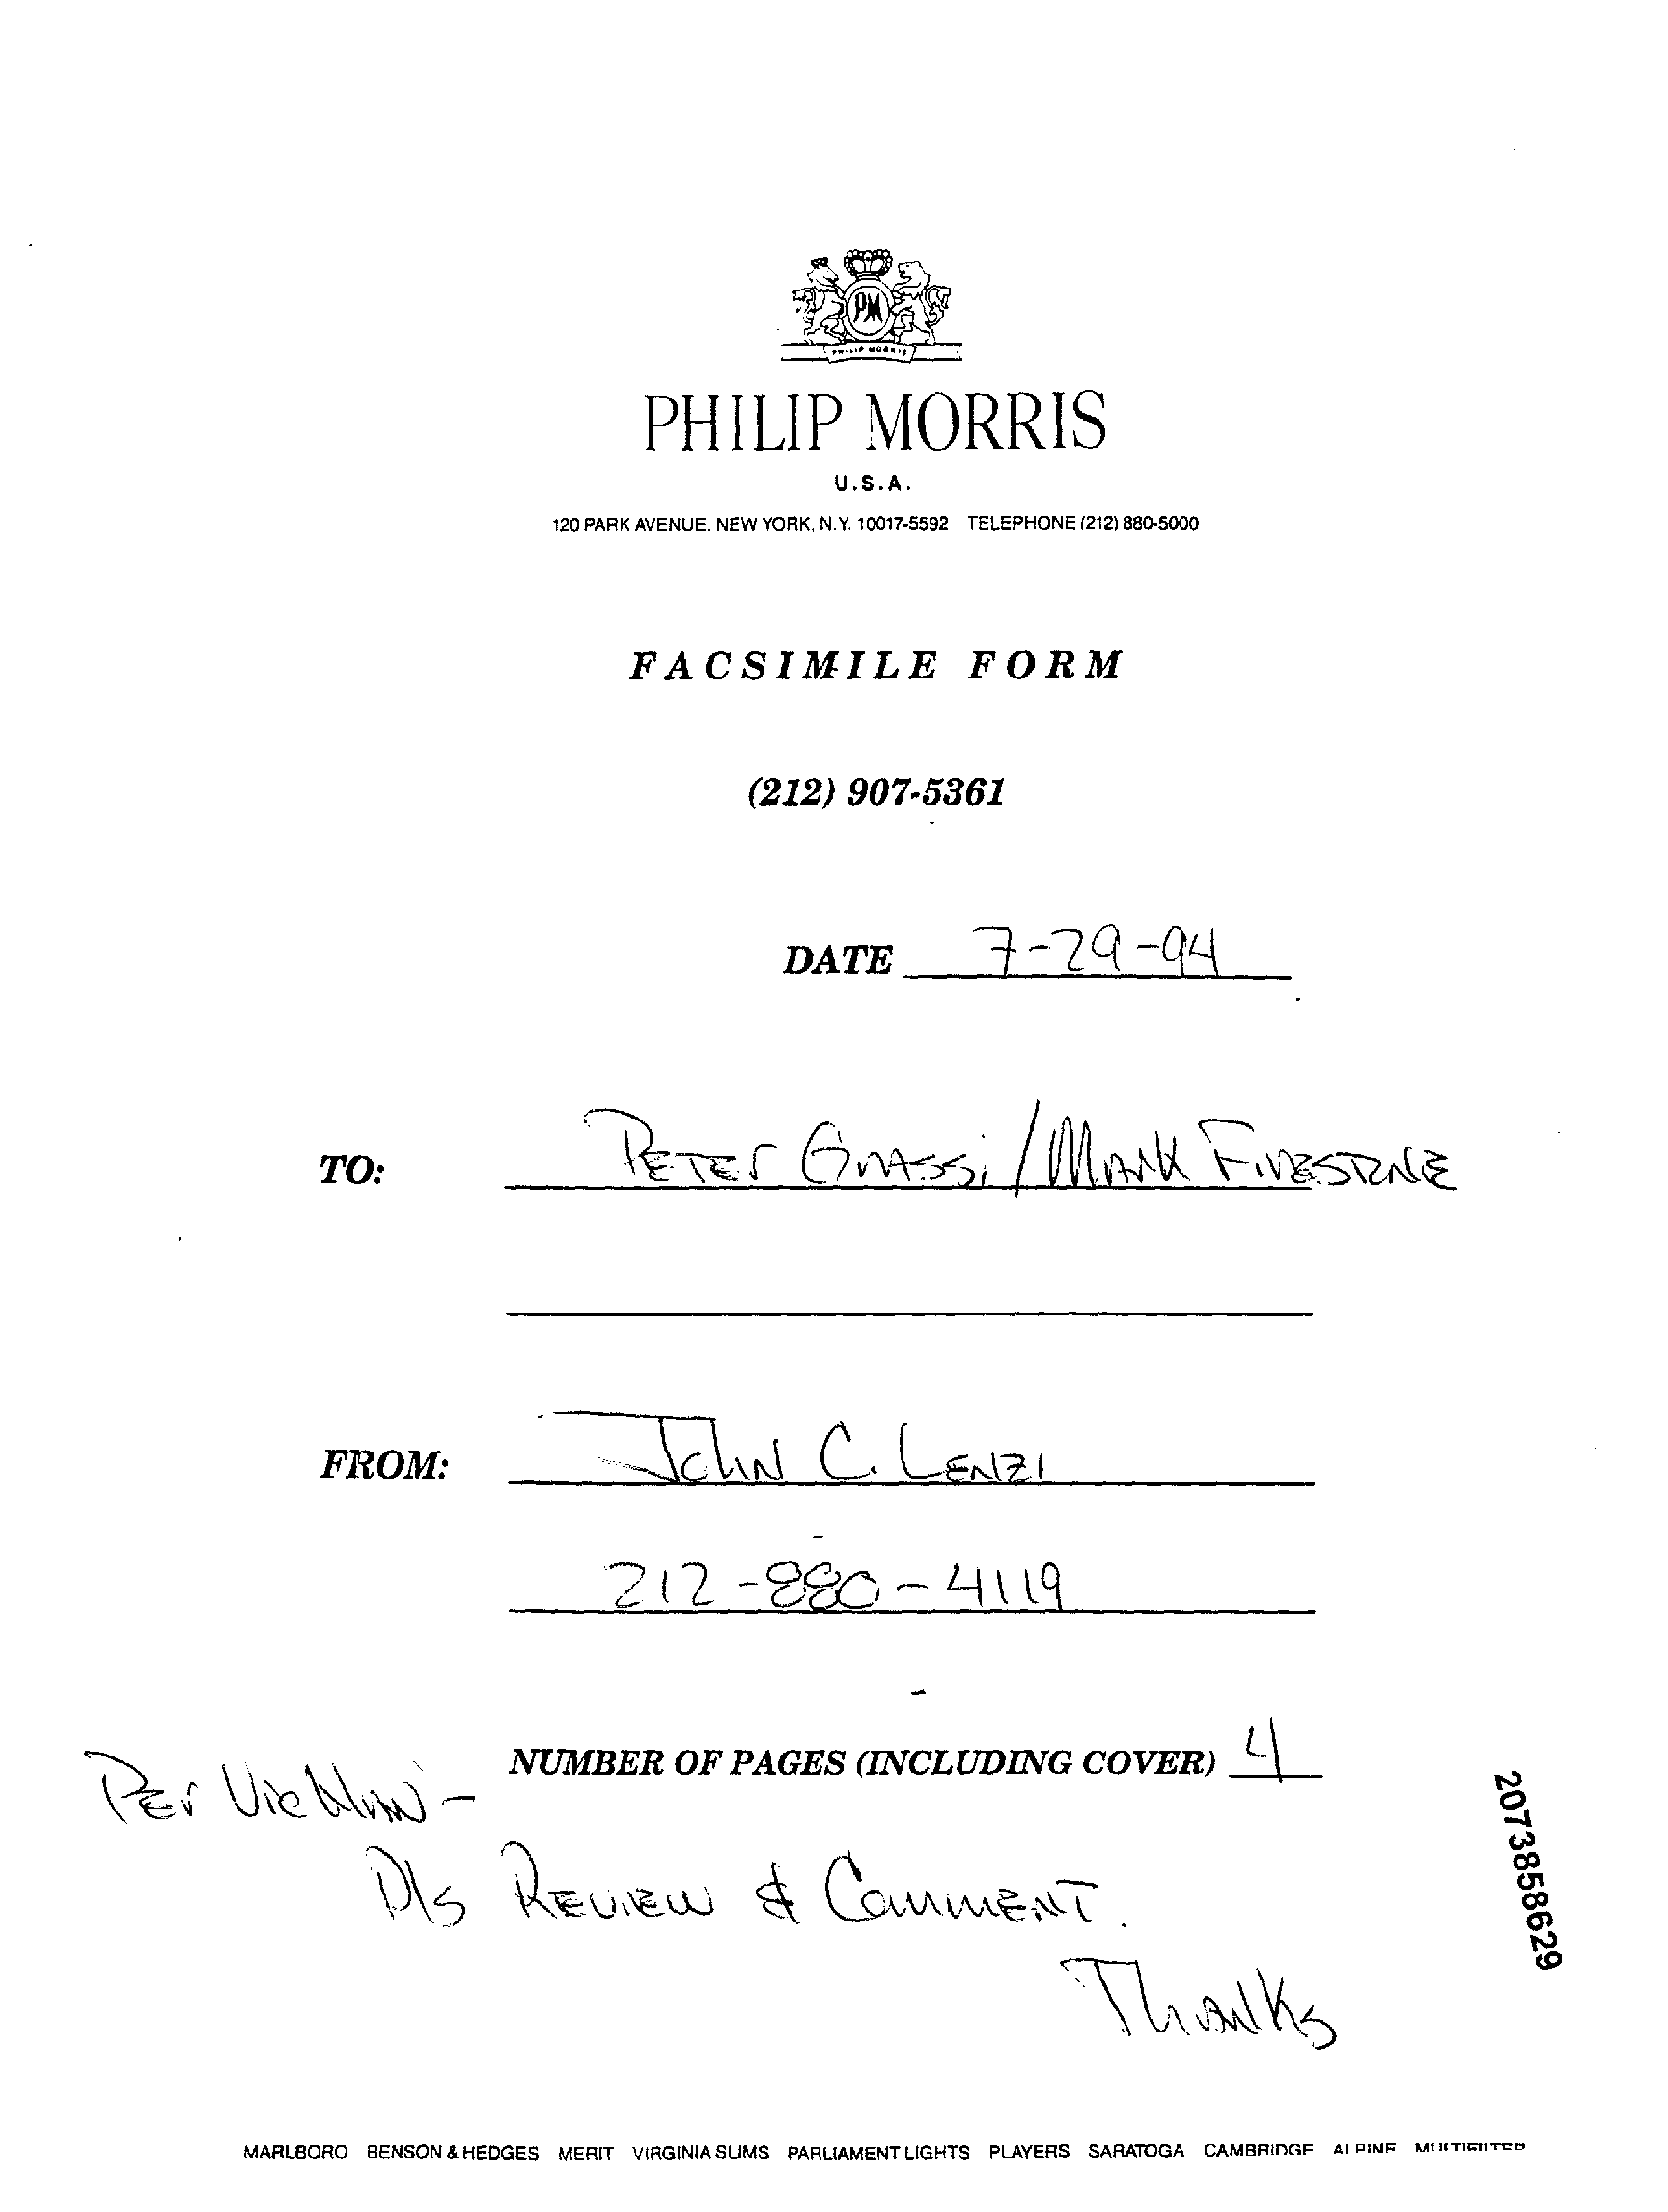 PM
PHILIP MORRIS
PHILIP MORRIS
U.S.A.
120 PARK AVENUE, NEW YORK, N.Y. 10017-5592 TELEPHONE (212) 880-5000
FACSIMILE FORM
(212) 907-5361
DATE 7-29-94
TO: PETER GRASSi / MARK FIRESTONE
FROM: JOHN C. LENZI
212-880-4119
NUMBER OF PAGES (INCLUDING COVER) 4
PEr Vic -
Pls REVIEW & COMMENT.
Thanks
2073858629
MARLBORO BENSON & HEDGES MERIT VIRGINIA SLIMS PARLIAMENT LIGHTS PLAYERS SARATOGA CAMBRIDGE ALPINE MULTIFILTER